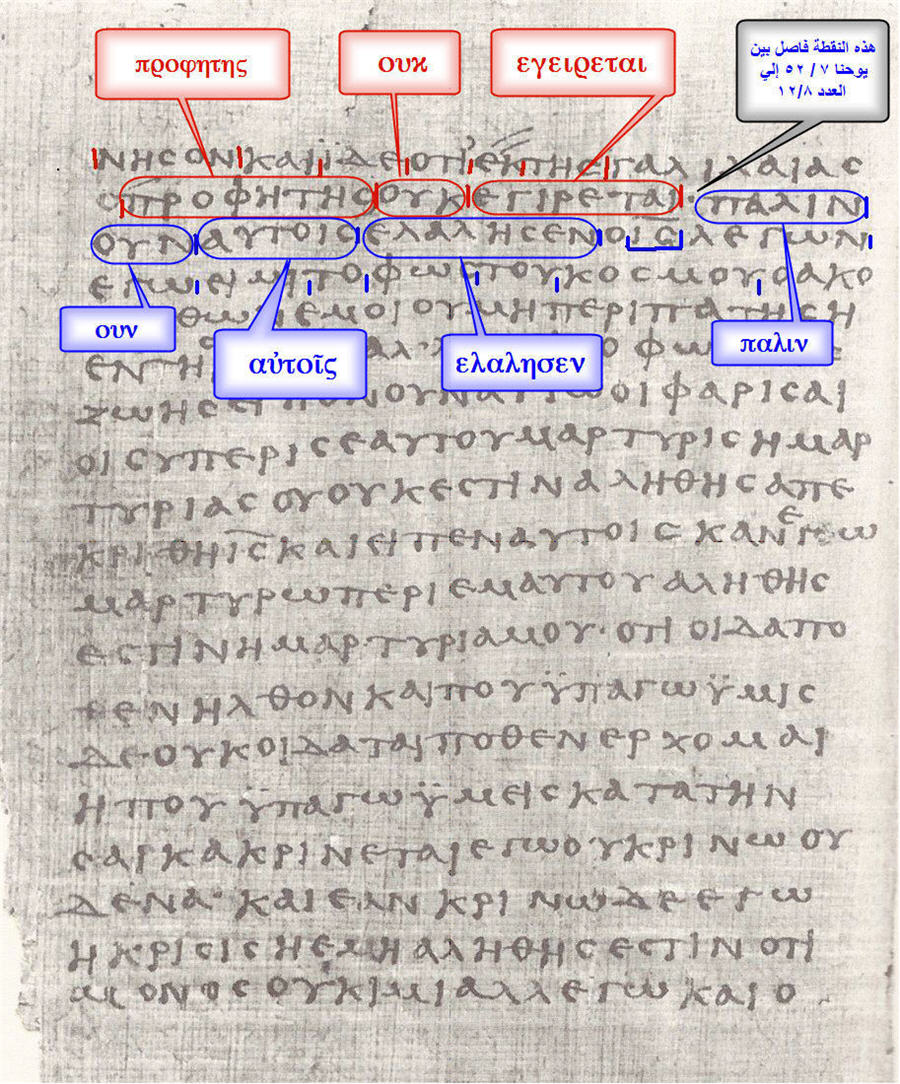 προφητης
ουκ
εγειρεται
هذه النقطة فاصل بين
يوحنا ٧ / ٥٢ إلي
العدد ١٢/٨
ΝΗϹΟΝΚΑΙΪΔΕΟΤΙΕΚΤΗϹΓΑΛΙΛΑΙΑϹ
ΟΠΡΟΦΗΤΗϹΟΥΚΕΓΙΡΕΤΑΙ·ΠΑΛΙΝ
ΟΥΝΑΥΤΟΙϹΕΛΑΛΗϹΕΝΟΙϹΛΕΓΩΝ
ΕΓΩΕΙΜΙΤΟΦΩϹΤΟΥΚΟϹΜΟΥΟΑΚΟ
ΘΩΝΕΜΟΙΟΥΜΗΠΕΡΙΠΑΤΗϹΗ
ουν
αὐτοῖς
ελαλησεν
παλιν
ΕΝΤΗ ΦΩ
ΖΩΗϹ ΟΙΦΑΡΙϹΑΙ
ΟΙϹΥΠΕΡΙϹΕΑΥΤΟΥΜΑΡΤΥΡΙϹΗΜΑΡ
ΤΥΡΙΑϹΟΥΟΥΚΕϹΤΙΝΑΛΗΘΗϹΑΠΕ
ΚΡΙΘΗΙϹΚΑΙΕΙΠΕΝΑΥΤΟΙϹΚΑΝΕΓΩ
ΜΑΡΤΥΡΩΠΕΡΙΕΜΑΥΤΟΥΑΛΗΘΗϹ
ΕϹΤΙΝΗΜΑΡΤΥΡΙΑΜΟΥ·ΟΤΙΟΙΔΑΠΟ
ΘΕΝΗΛΘΟΝΚΑΙΠΟΥΫΠΑΓΩΫΜΙϹ
ΔΕΟΥΚΟΙΔΑΤΑΙΠΟΘΕΝΕΡΧΟΜΑΙ
ΗΠΟΥΫΠΑΓΩΫΜΕΙϹΚΑΤΑΤΗΝ
ϹΑΡΚΑΚΡΙΝΕΤΑΙΕΓΩΟΥΚΡΙΝΩΟΥ
ΔΕΝΑ·ΚΑΙΕΑΝΚΡΙΝΩΔΕΕΓΩ
ΗΚΡΙϹΙϹΗΕΜΗΑΛΗΘΗϹΕϹΤΙΝΟΤΙ
ΜΟΝΟϹΟΥΚΙΜΙΑΛΛΕΓΩΚΑΙΟ